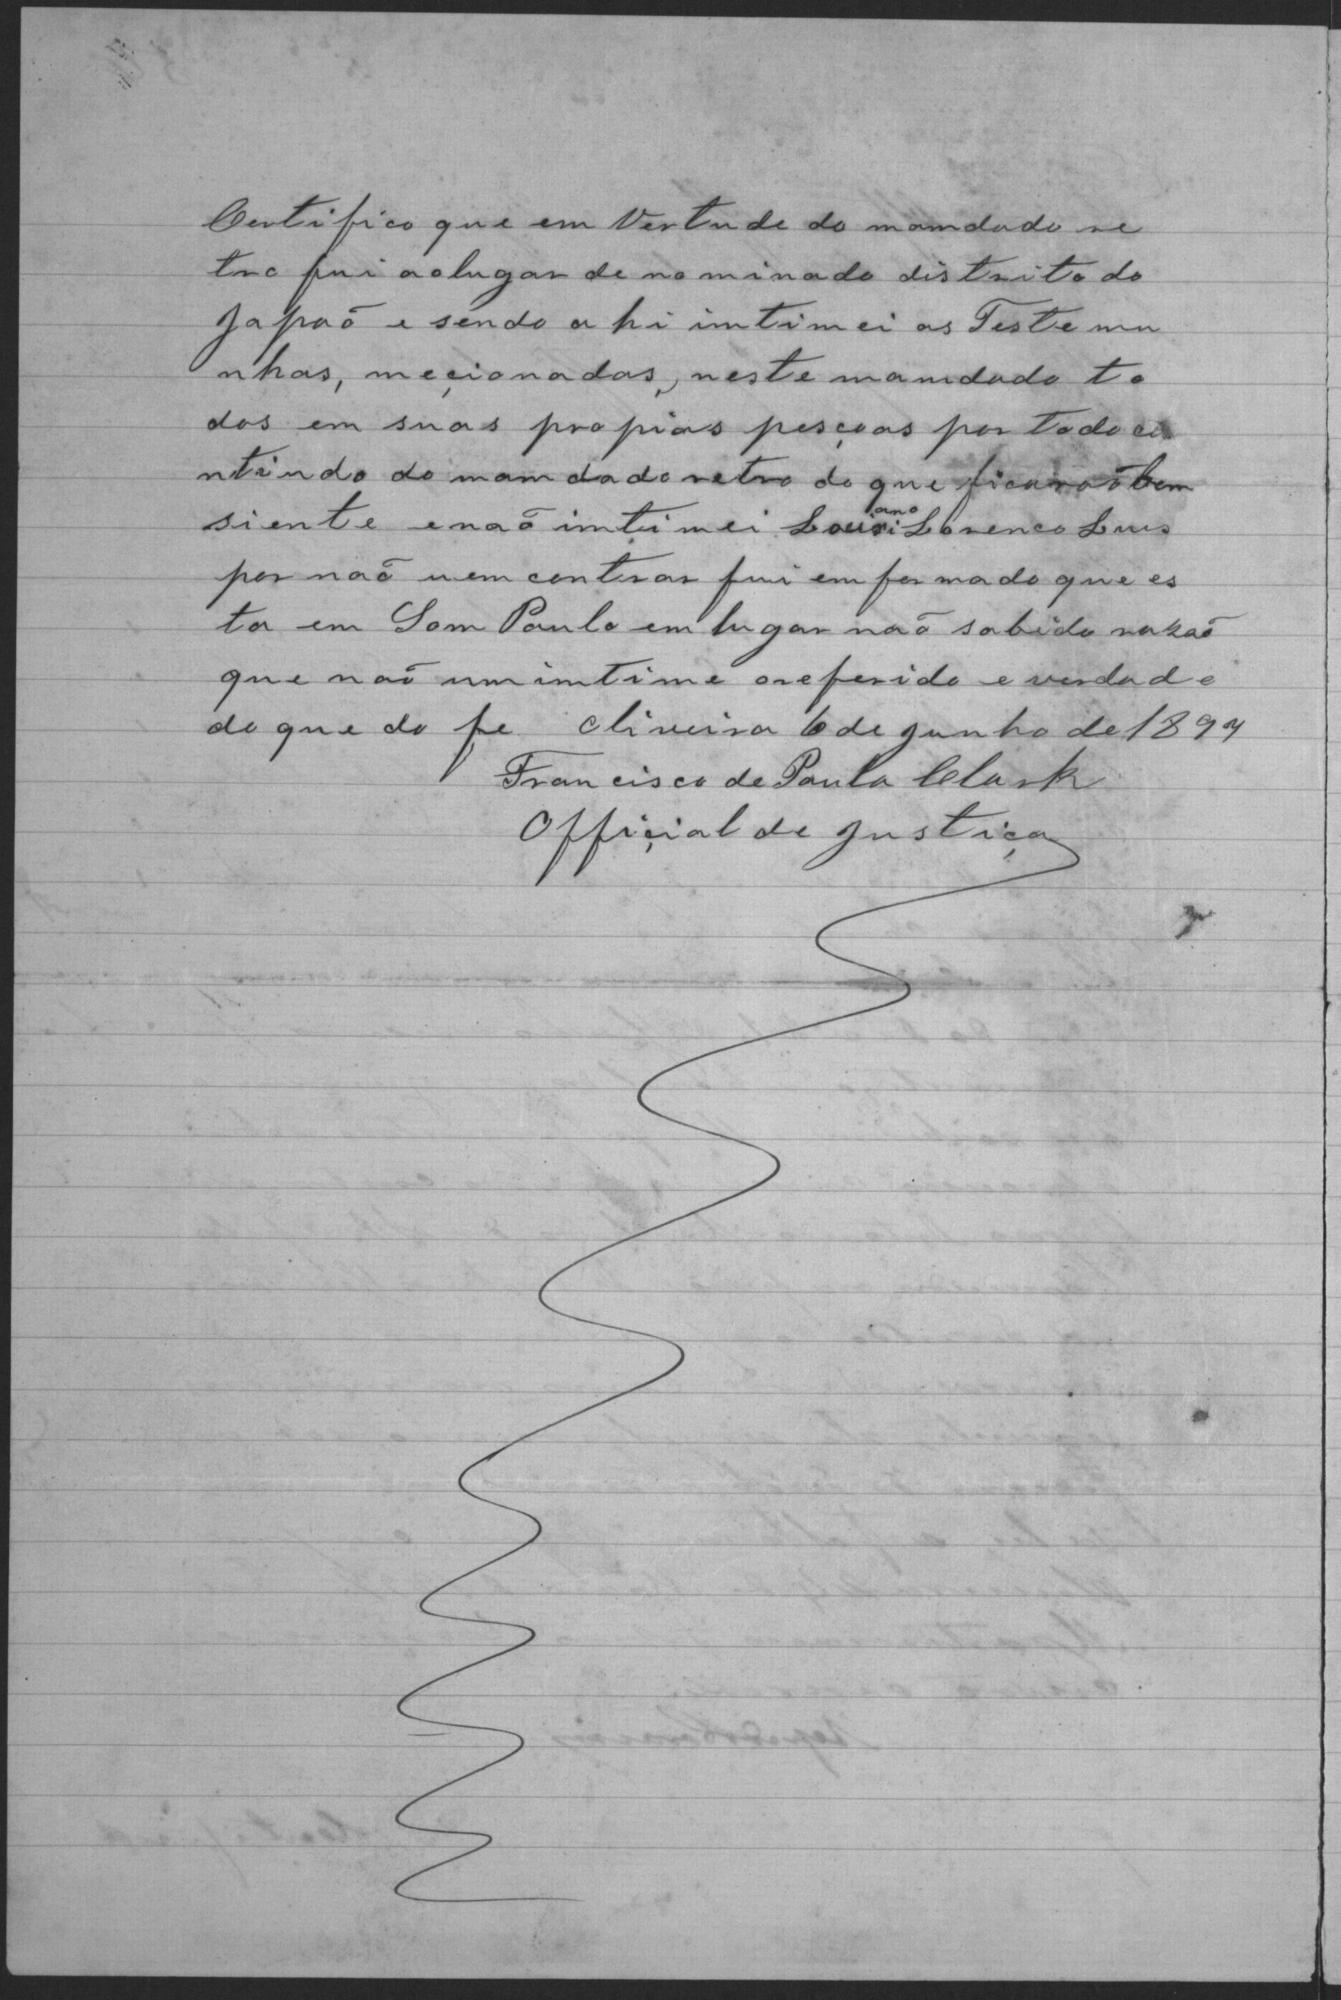 Certifico que em Vertude do mamdado re
tro fui ao lugar denominado distrito do
Japaõ e sendo ahi imtimei as Testemu
nhas, meçionadas, neste mamdado to
dos em suas propias pesçoas por todo co
ntiudo do mamdado retro do que ficaraõ bem
siente e naõ imtimei Lorenco Luis
por naõ u emcontrar fui emformado que es
ta em Som Paulo em lugar naõ sabido razaõ
que naõ um imtime o referido e verdade
do que do fe Oliveira 6 de Junho de 1894
Francisco de Paula Clark
Offiçial de Justiça